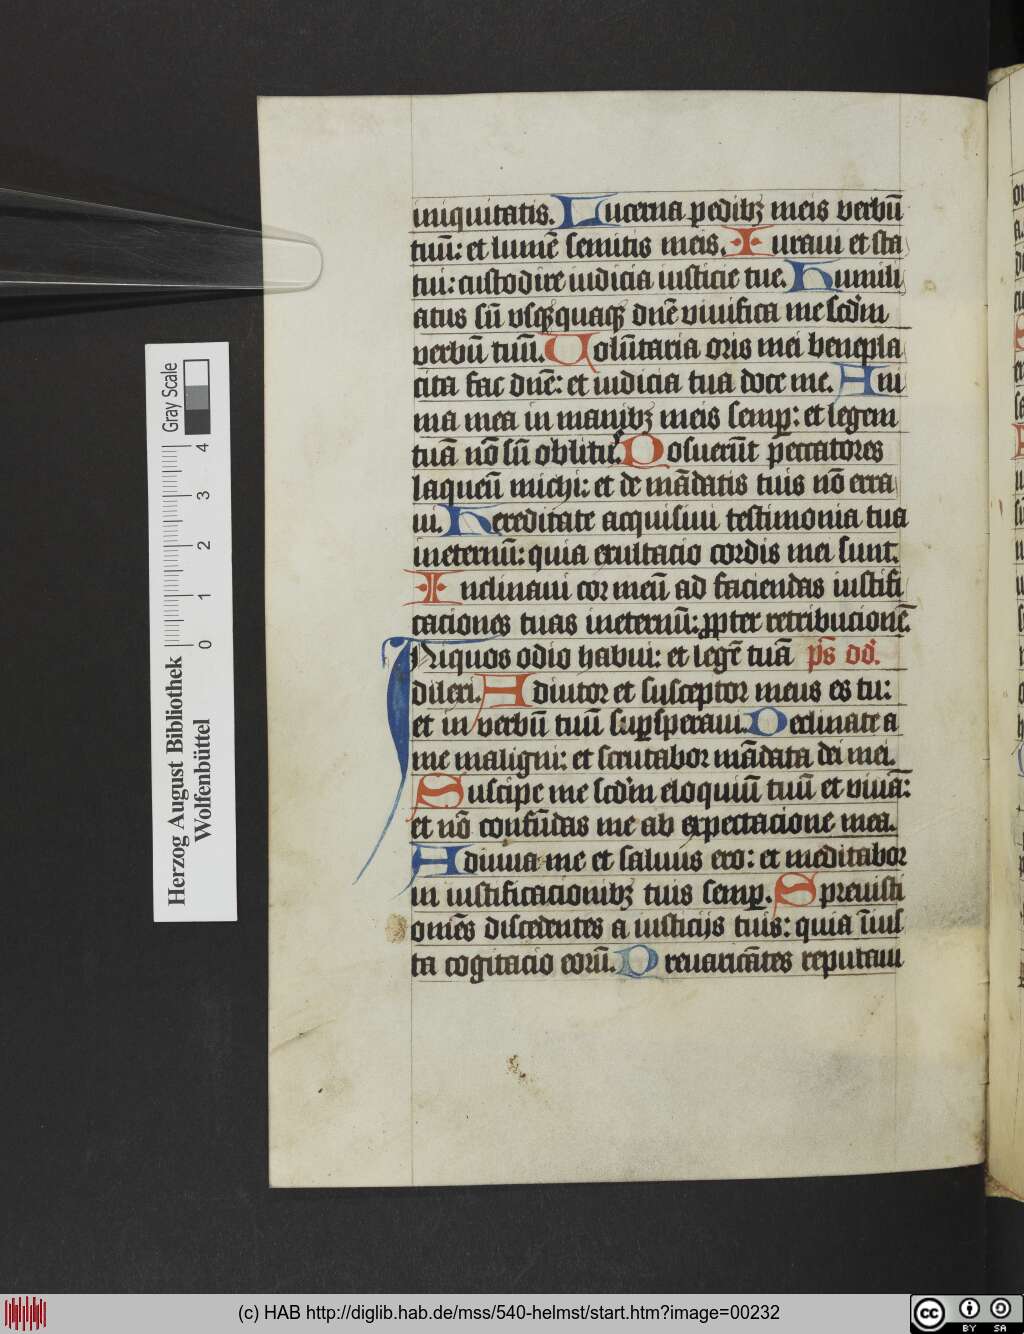 iniquitatis. Lucerna pedibꝫ meis verbū
tuū: et lumē semitis meis. Iuraui et sta
tui: custodire iudicia iusticie tue. Humili
atus sū vsqꝫquaqꝫ dn̄e viuifica me scd̓m
verbū tuū. Volūtaria oris mei benepla
cita fac dn̄e: et iudicia tua doce me. Ani
ma mea in manibꝫ meis semꝑ: et legem
tuā nō sū oblitꝰ. Posuerūt peccatores
laqueū michi: et de mādatis tuis nō erra
ui. Hereditate acquisiui testimonia tua
ineternū: quia exultacio cordis mei sunt.
Inclinaui cor meū ad faciendas iustifi
caciones tuas ineternū: ꝓpter retribucionē.
Iniquos odio habui: et legē tuā p̄s dd̓.
dilexi. Adiutor et susceptor meus es tu:
et in verbū tuū suꝑsperaui. Declinate a
me maligni: et scrutabor mādata dei mei.
Suscipe me scd̓m eloquiū tuū et viuā:
et nō confūdas me ab expectacione mea.
Adiuua me et saluus ero: et meditabor
in iustificacionibꝫ tuis semꝑ. Spreuisti
omēs discedentes a iusticijs tuis: quia īius
ta cogitacio eorū. Preuaricātes reputaui
Herzog August Bibliothek
Wolfenbüttel
0 1 2 3 4
Gray Scale
(c) HAB http://diglib.hab.de/mss/540-helmst/start.htm?image=00232
cc BY SA